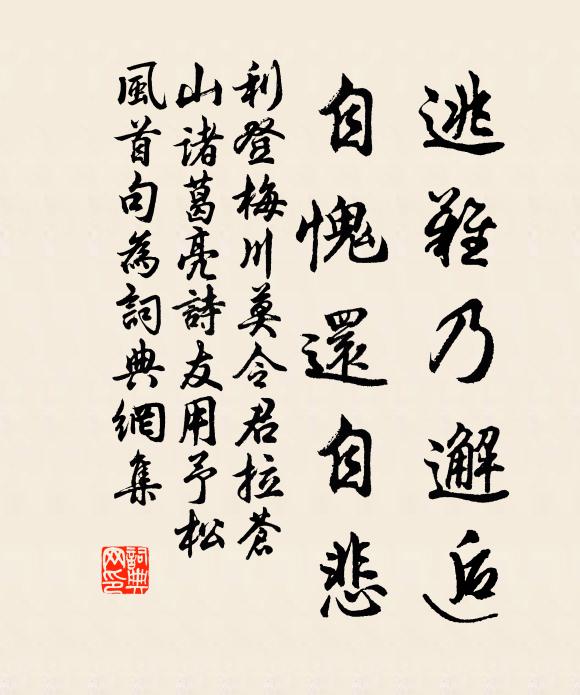 逃難乃邂逅
自愧還自悲
利登梅川莫令君拉蒼
山諸葛亮詩友用予松
風首句為詞典網集
詞典網印